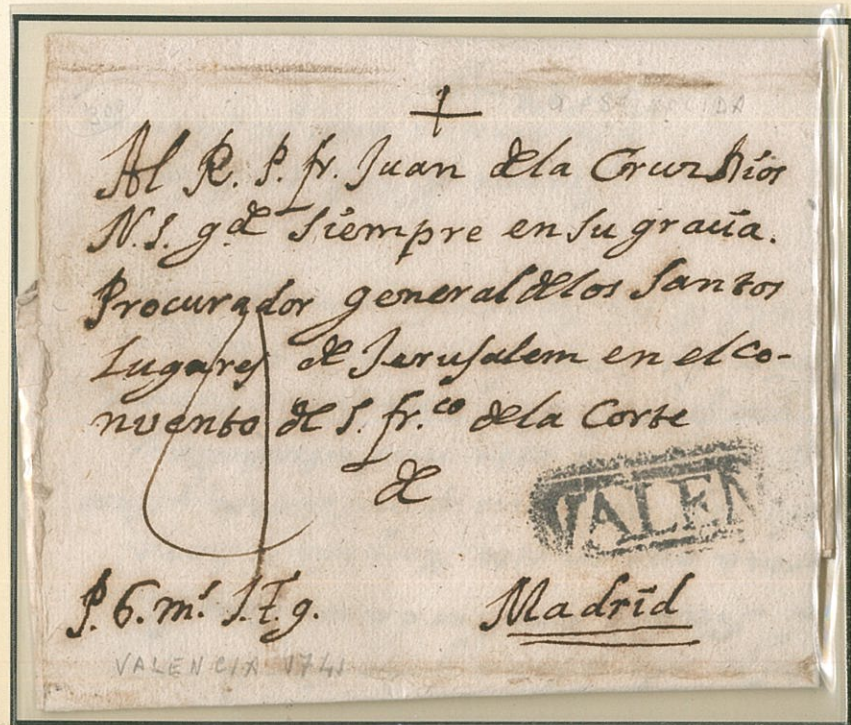 +
Al R. P. fr. Juan dela Cruz Dios
N. S. gde siempre en su gracia.
Procurador general delos Santos
Lugares de Jerusalem en el co-
nvento de S. fr.co dela Corte
de
VALEN
P. 6. ms. Madrid
VALENCIA 1741